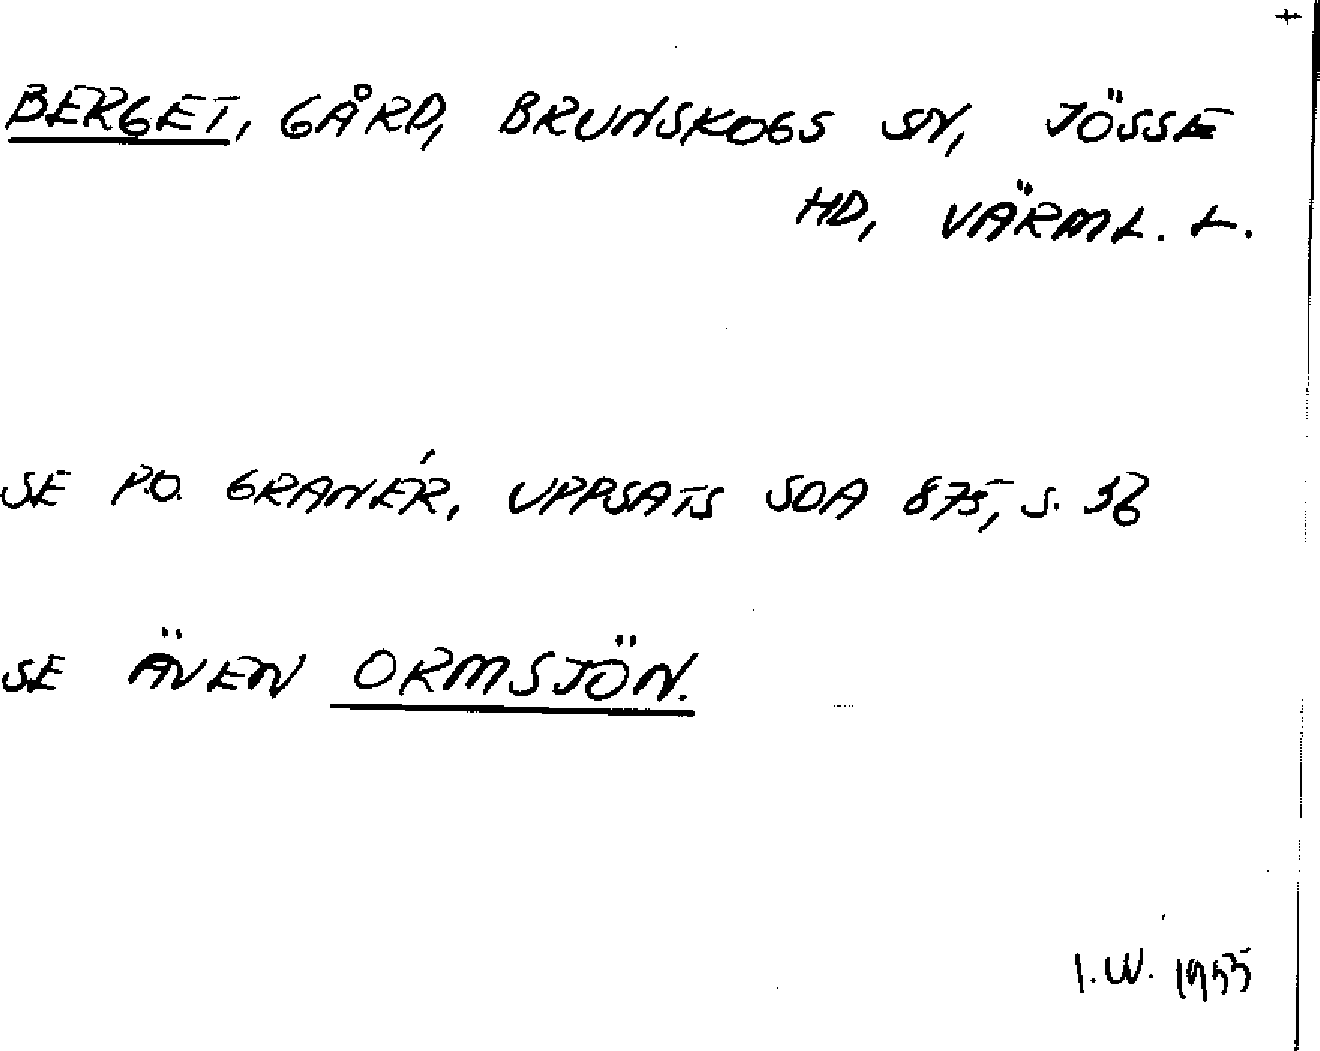 BERGET, GÅRD, BRUNSKOGS SN, JÖSSE
HD, VÄRML. L.
SE P.O. GRANÉR, UPPSATS SOA 875, S. 16
SE ÄVEN ORMSJÖN.
I.W. 1955